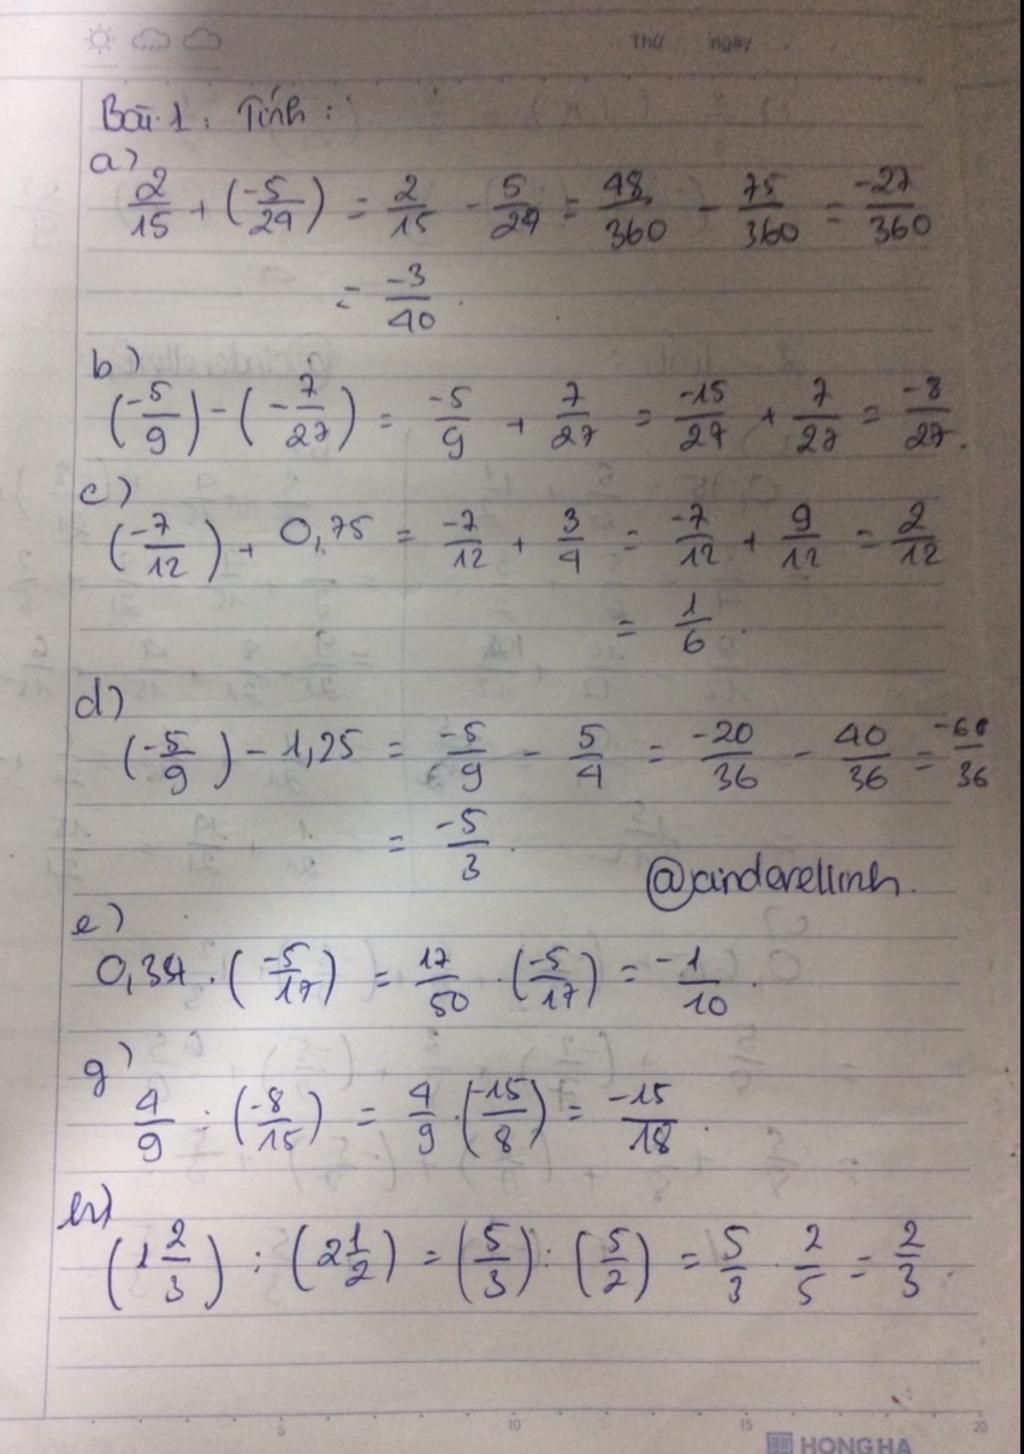 Thứ ngày
Bài 1: Tính:
a)
2/15 + (-5/24) = 2/15 - 5/24 = 48/360 - 75/360 = -27/360
= -3/40.
b)
(-5/9) - (-7/27) = -5/9 + 7/27 = -15/27 + 7/27 = -8/27.
c)
(-7/12) + 0,75 = -7/12 + 3/4 = -7/12 + 9/12 = 2/12
= 1/6.
d)
(-5/9) - 1,25 = -5/9 - 5/4 = -20/36 - 40/36 = -60/36
= -5/3.
@cinderellinh.
e)
0,34 . (-5/17) = 17/50 . (-5/17) = -1/10.
g)
4/9 : (-8/15) = 4/9 . (-15/8) = -15/18.
h)
(1 2/3) : (2 1/2) = (5/3) : (5/2) = 5/3 . 2/5 = 2/3.
5 10 15 20
HONG HA